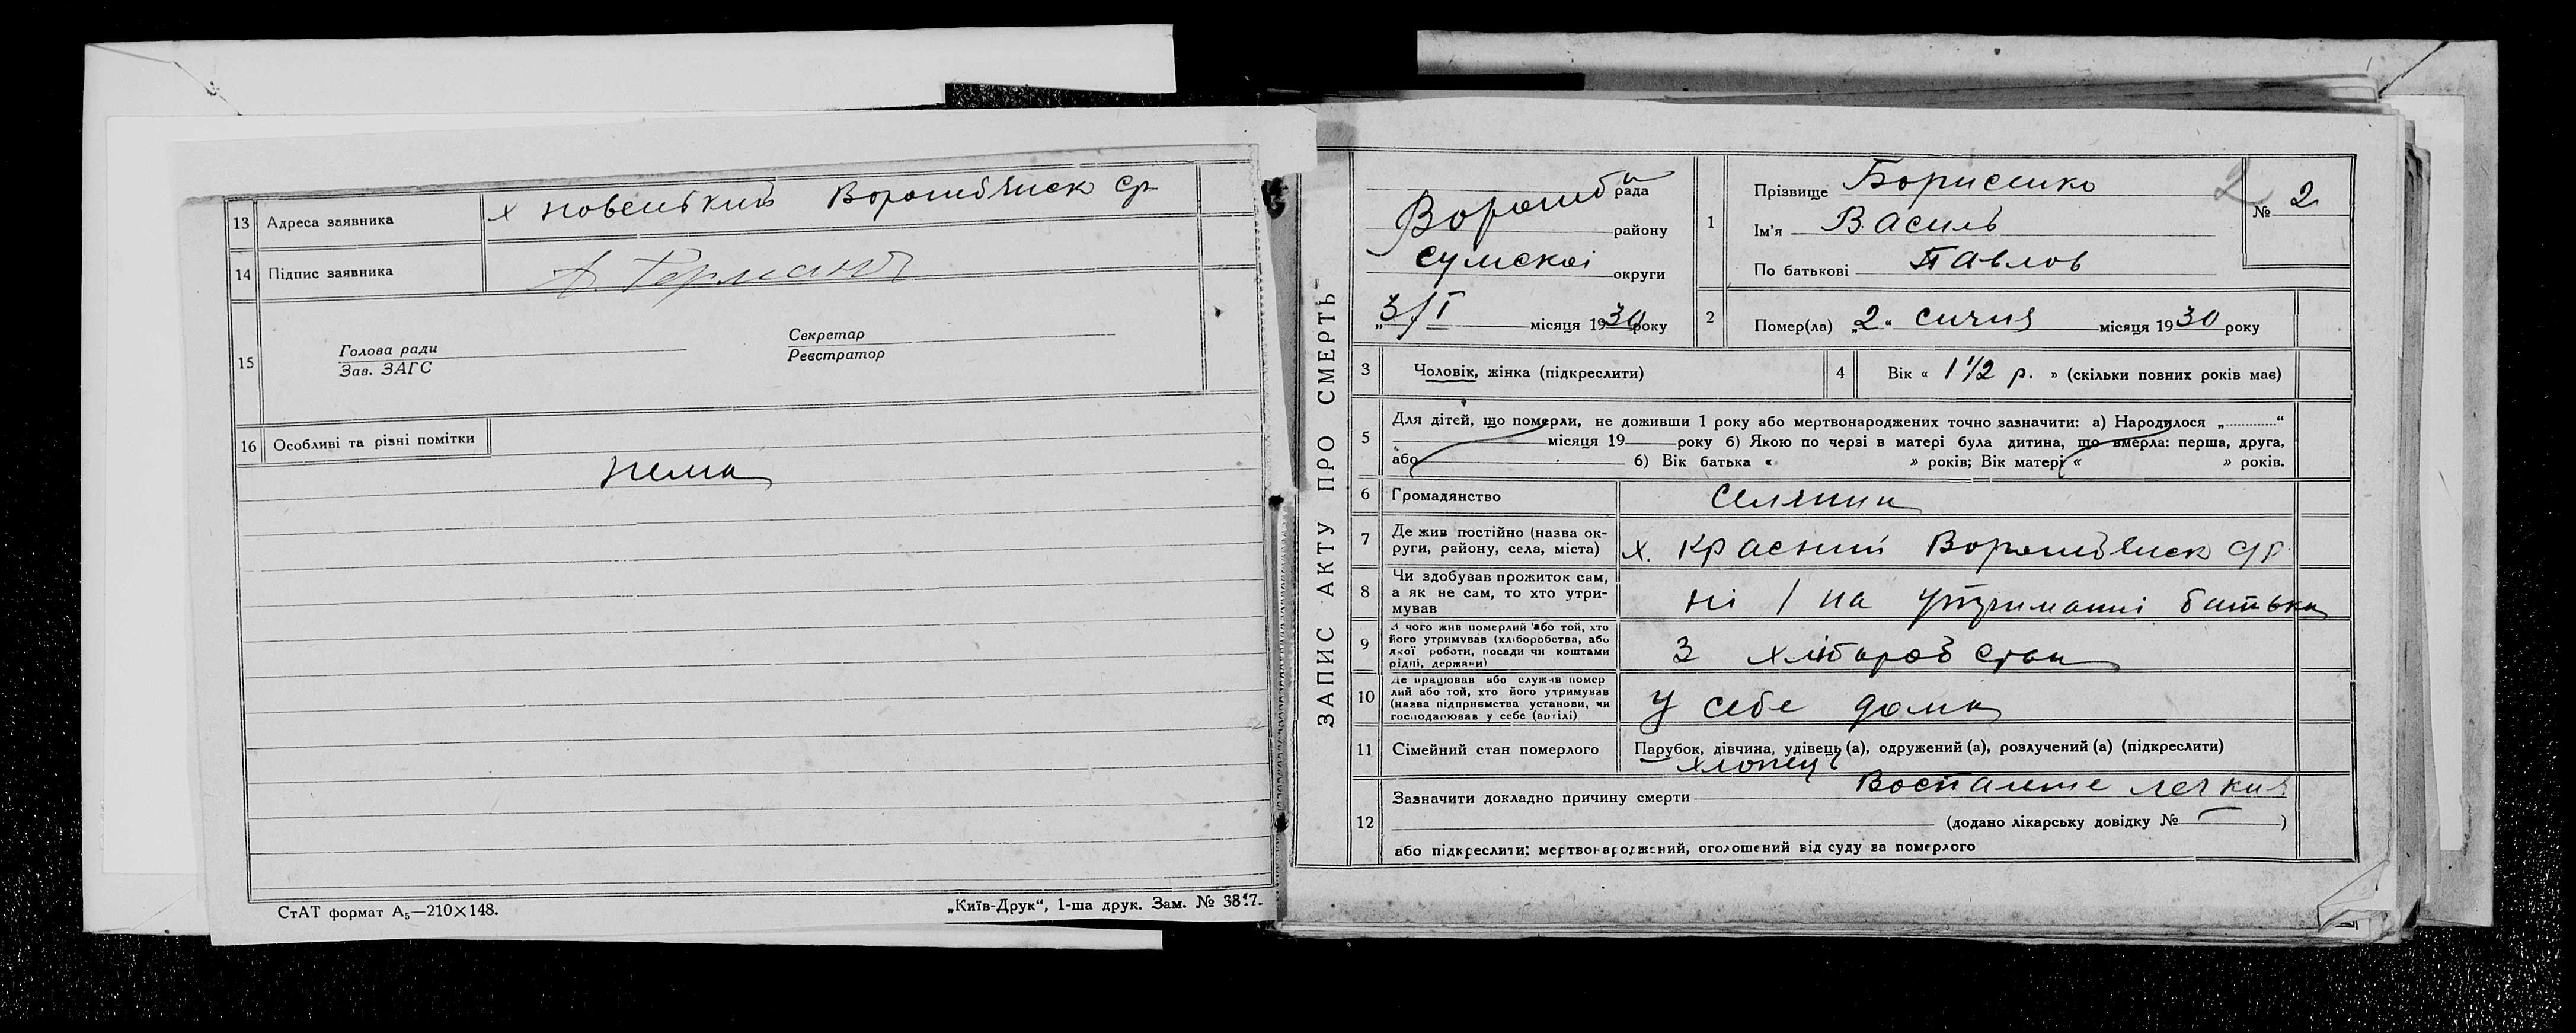 13 Адреса заявника х Новенький Ворожбянск ср
14 Підпис заявника
15 Голова ради
Зав. ЗАГС
Секретар
Реєстратор
16 Особливі та різні помітки
нема
СтАТ формат А₅—210×148.
„Київ-Друк“, 1-ша друк. Зам. №
ЗАПИС АКТУ ПРО СМЕРТЬ
рада
Ворожб району
Сумскої округи
„3/I місяця 1930 року
1 Прізвище Борисенко
Ім'я Василь
По батькові Павлов
2
№ 2
2 Помер(ла) „2“ січня місяця 1930 року
3 Чоловік, жінка (підкреслити)
4 Вік « 1 1/2 р. » (скільки повних років має)
5 Для дітей, що померли, не доживши 1 року або мертвонароджених точно зазначити: а) Народилося „............“
місяця 19 року б) Якою по черзі в матері була дитина, що вмерла: перша, друга,
або б) Вік батька « » років; Вік матері « » років.
6 Громадянство селянин
7 Де жив постійно (назва ок-
руги, району, села, міста) х. Красний Ворожбянск ср.
8 Чи здобував прожиток сам,
а як не сам, то хто утри-
мував ні / на утриманні батька
9 З чого жив померлий або той, хто
його утримував (хліборобства, або
якої роботи, посади чи коштами
рідні, держави) З хлібаробства
10 Де працював або служив помер
лий або той, хто його утримував
(назва підприємства установи, чи
господарював у себе (артілі) У себе дома
11 Сімейний стан померлого Парубок, дівчина, удівець (а), одружений (а), розлучений (а) (підкреслити)
хлопець
12 Зазначити докладно причину смерти Воспаление легких
(додано лікарську довідку № )
або підкреслити: мертвонароджений, оголошений від суду за померлого